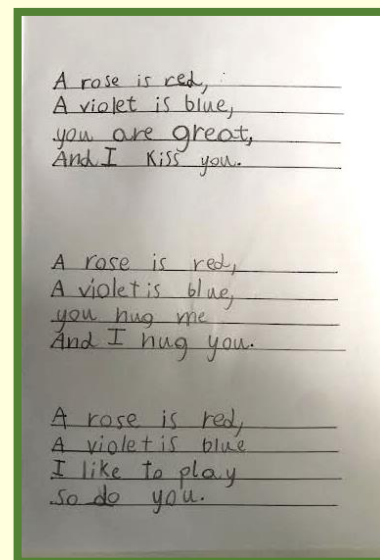 A rose is red,
A violet is blue,
you are great,
And I kiss you.
A rose is red,
A violet is blue,
you hug me
And I hug you.
A rose is red,
A violet is blue
I like to play
so do you.